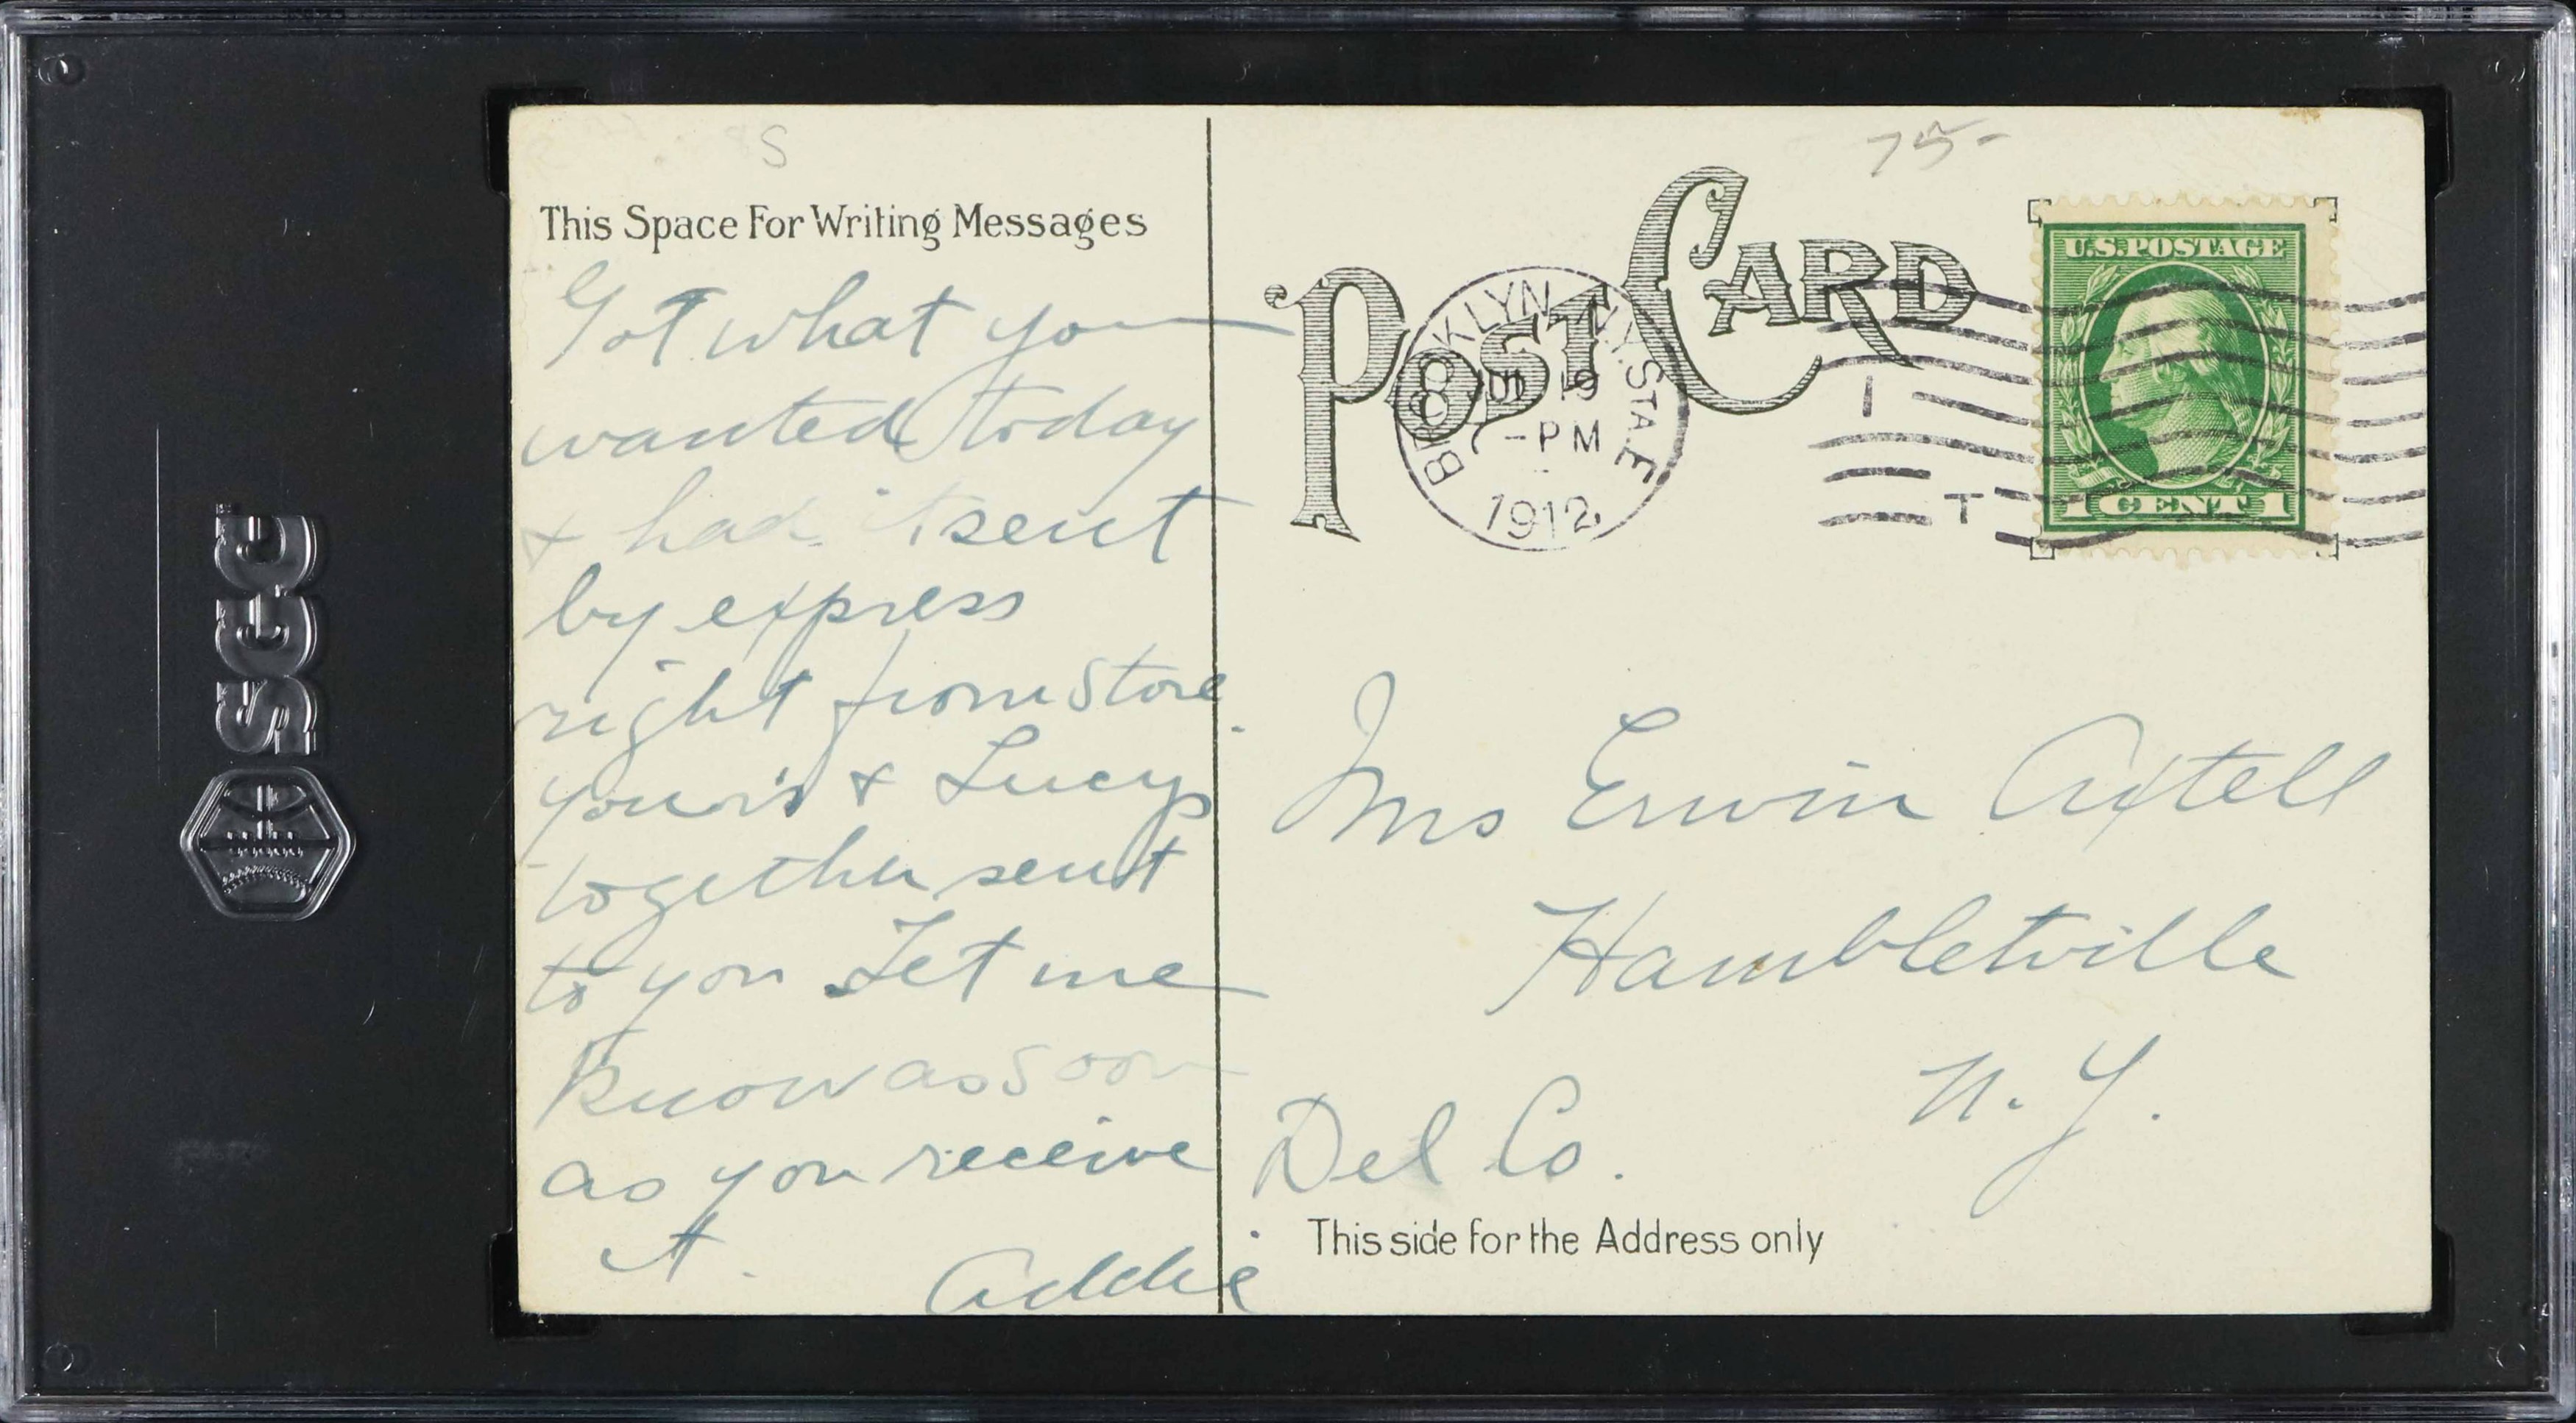 SGC
S
75-
This Space For Writing Messages
Got what you
wanted today
& had it sent
by express
right from store.
your's & Lucys
together sent
to you Let me
know as soon
as you receive
it.
Addie
POST CARD
BROOKLYN, N.Y. STA. E
19
-PM
1912
1
T
U.S. POSTAGE
1 CENT 1
Mrs Erwin Axtell
Hambletville
N. Y.
Del Co.
This side for the Address only